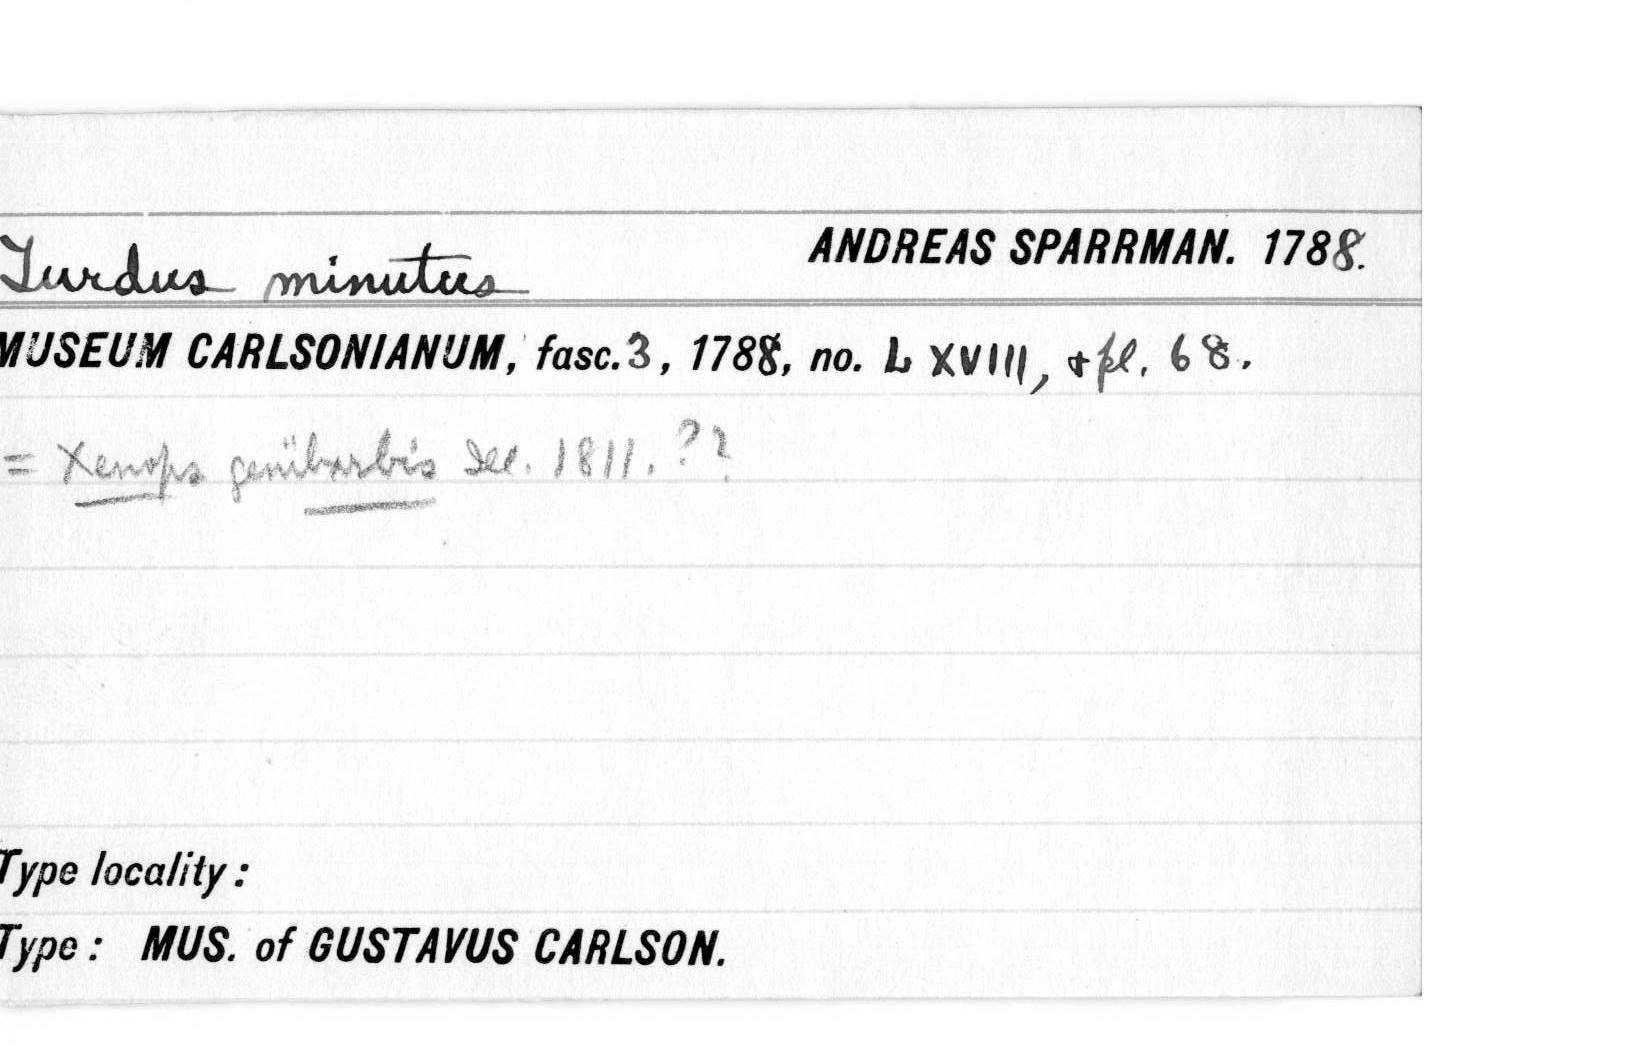 Turdus minutus
ANDREAS SPARRMAN. 1788.
MUSEUM CARLSONIANUM, fasc. 3, 1788, no. LXVIII, + pl. 68.
= Xenops genibarbis Ill. 1811. ??
Type locality:
Type: MUS. of GUSTAVUS CARLSON.